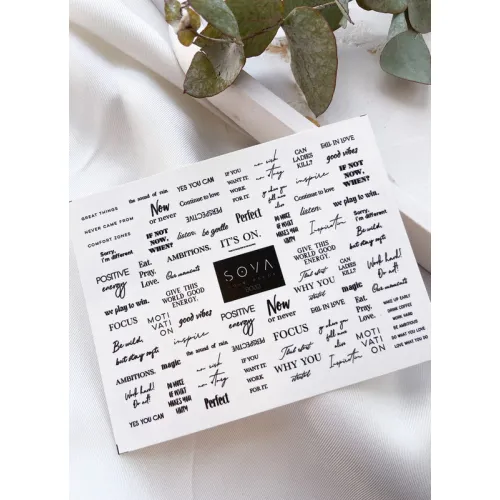 GREAT THINGS
NEVER CAME FROM
COMFORT ZONES
the sound of rain.
Now
or never
IF NOT
NOW,
WHEN?
Sorry,
I'm different
YES YOU CAN
Continue to love
PERSPECTIVE
listen.
be gentle
AMBITIONS.
IT'S ON.
IF YOU
WANT IT.
WORK
FOR IT.
Perfect
no wish
no story
go where you
feel most
alive
DO MORE
OF WHAT
MAKES YOU
HAPPY
CAN
LADIES
KILL?
inspire
Continue to love
listen.
Inspiration
FALL IN LOVE
good vibes
IF NOT
NOW,
WHEN?
we play to win.
Sorry,
I'm different
Be wild,
but stay soft.
POSITIVE
energy
Eat.
Pray.
Love.
Our moments
GIVE THIS
WORLD GOOD
ENERGY.
SOVA
GIVE THIS
WORLD GOOD
ENERGY.
CAN
LADIES
KILL?
Work hard!
Do it!
we play to win.
FOCUS
MOTI
VATI
ON
good vibes
POSITIVE
energy
Now
or never
FALL IN LOVE
Our moments
Eat.
Pray.
Love.
WAKE UP EARLY
DRINK COFFEE
WORK HARD
BE AMBITIOUS
DO WHAT YOU LOVE
LOVE WHAT YOU DO
Be wild,
but stay soft.
inspire
magic
the sound of rain.
PERSPECTIVE
FOCUS
go where you
feel most
alive
MOTI
VATI
ON
AMBITIONS.
Work hard!
Do it!
DO MORE
OF WHAT
MAKES YOU
HAPPY
no wish
no story
IF YOU
WANT IT.
WORK
FOR IT.
WHY YOU
WHY YOU
Inspiration
YES YOU CAN
Perfect